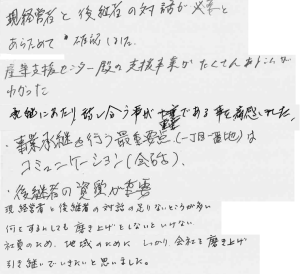 現経営者と後継者の対話が必要と
あらためて確認した。
産業支援センター殿の支援事業がたくさんあることが
わかった
承継にあたり話し合う事が重要である事を痛感しました。
・事業承継を行う最重要点(一丁目一番地)は
コミュニケーション(会話)、
・後継者の資質が重要
現経営者と後継者の対話の足りないところが多い
何をするにしても磨き上げをしないといけない
社員のため、地域のために しっかり会社を磨き上げ
引き継いでいきたいと思いました。